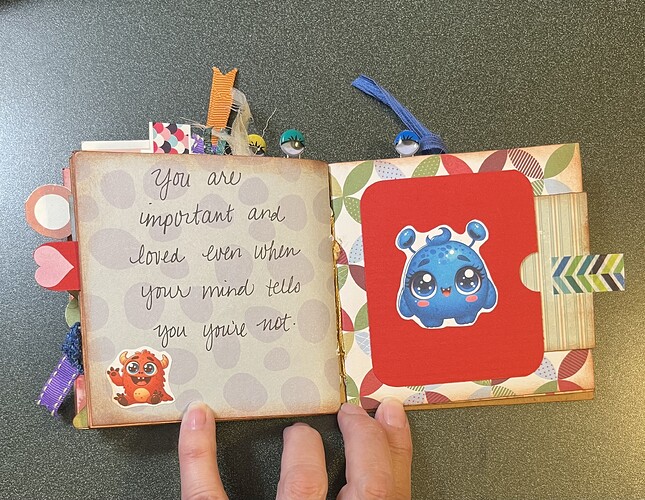 You are
important and
loved even when
your mind tells
you you're not.